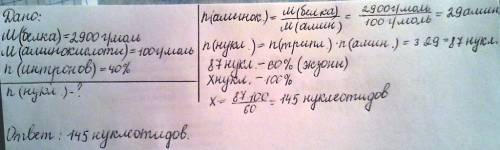 Дано:
М(белка)=2900 г/моль
М(аминокислоты)=100 г/моль
n(интронов)=40%
n(нукл.)-?
n(аминок.)= М(белка) / М(амин.) = 2900 г/моль / 100 г/моль = 29 амин
n(нукл.)=n(трипл.)·n(амин.)=3·29=87 нукл.
87 нукл.-60% (экзоны)
Хнукл.-100%
х= 87·100 / 60 = 145 нуклеотидов
Ответ: 145 нуклеотидов.